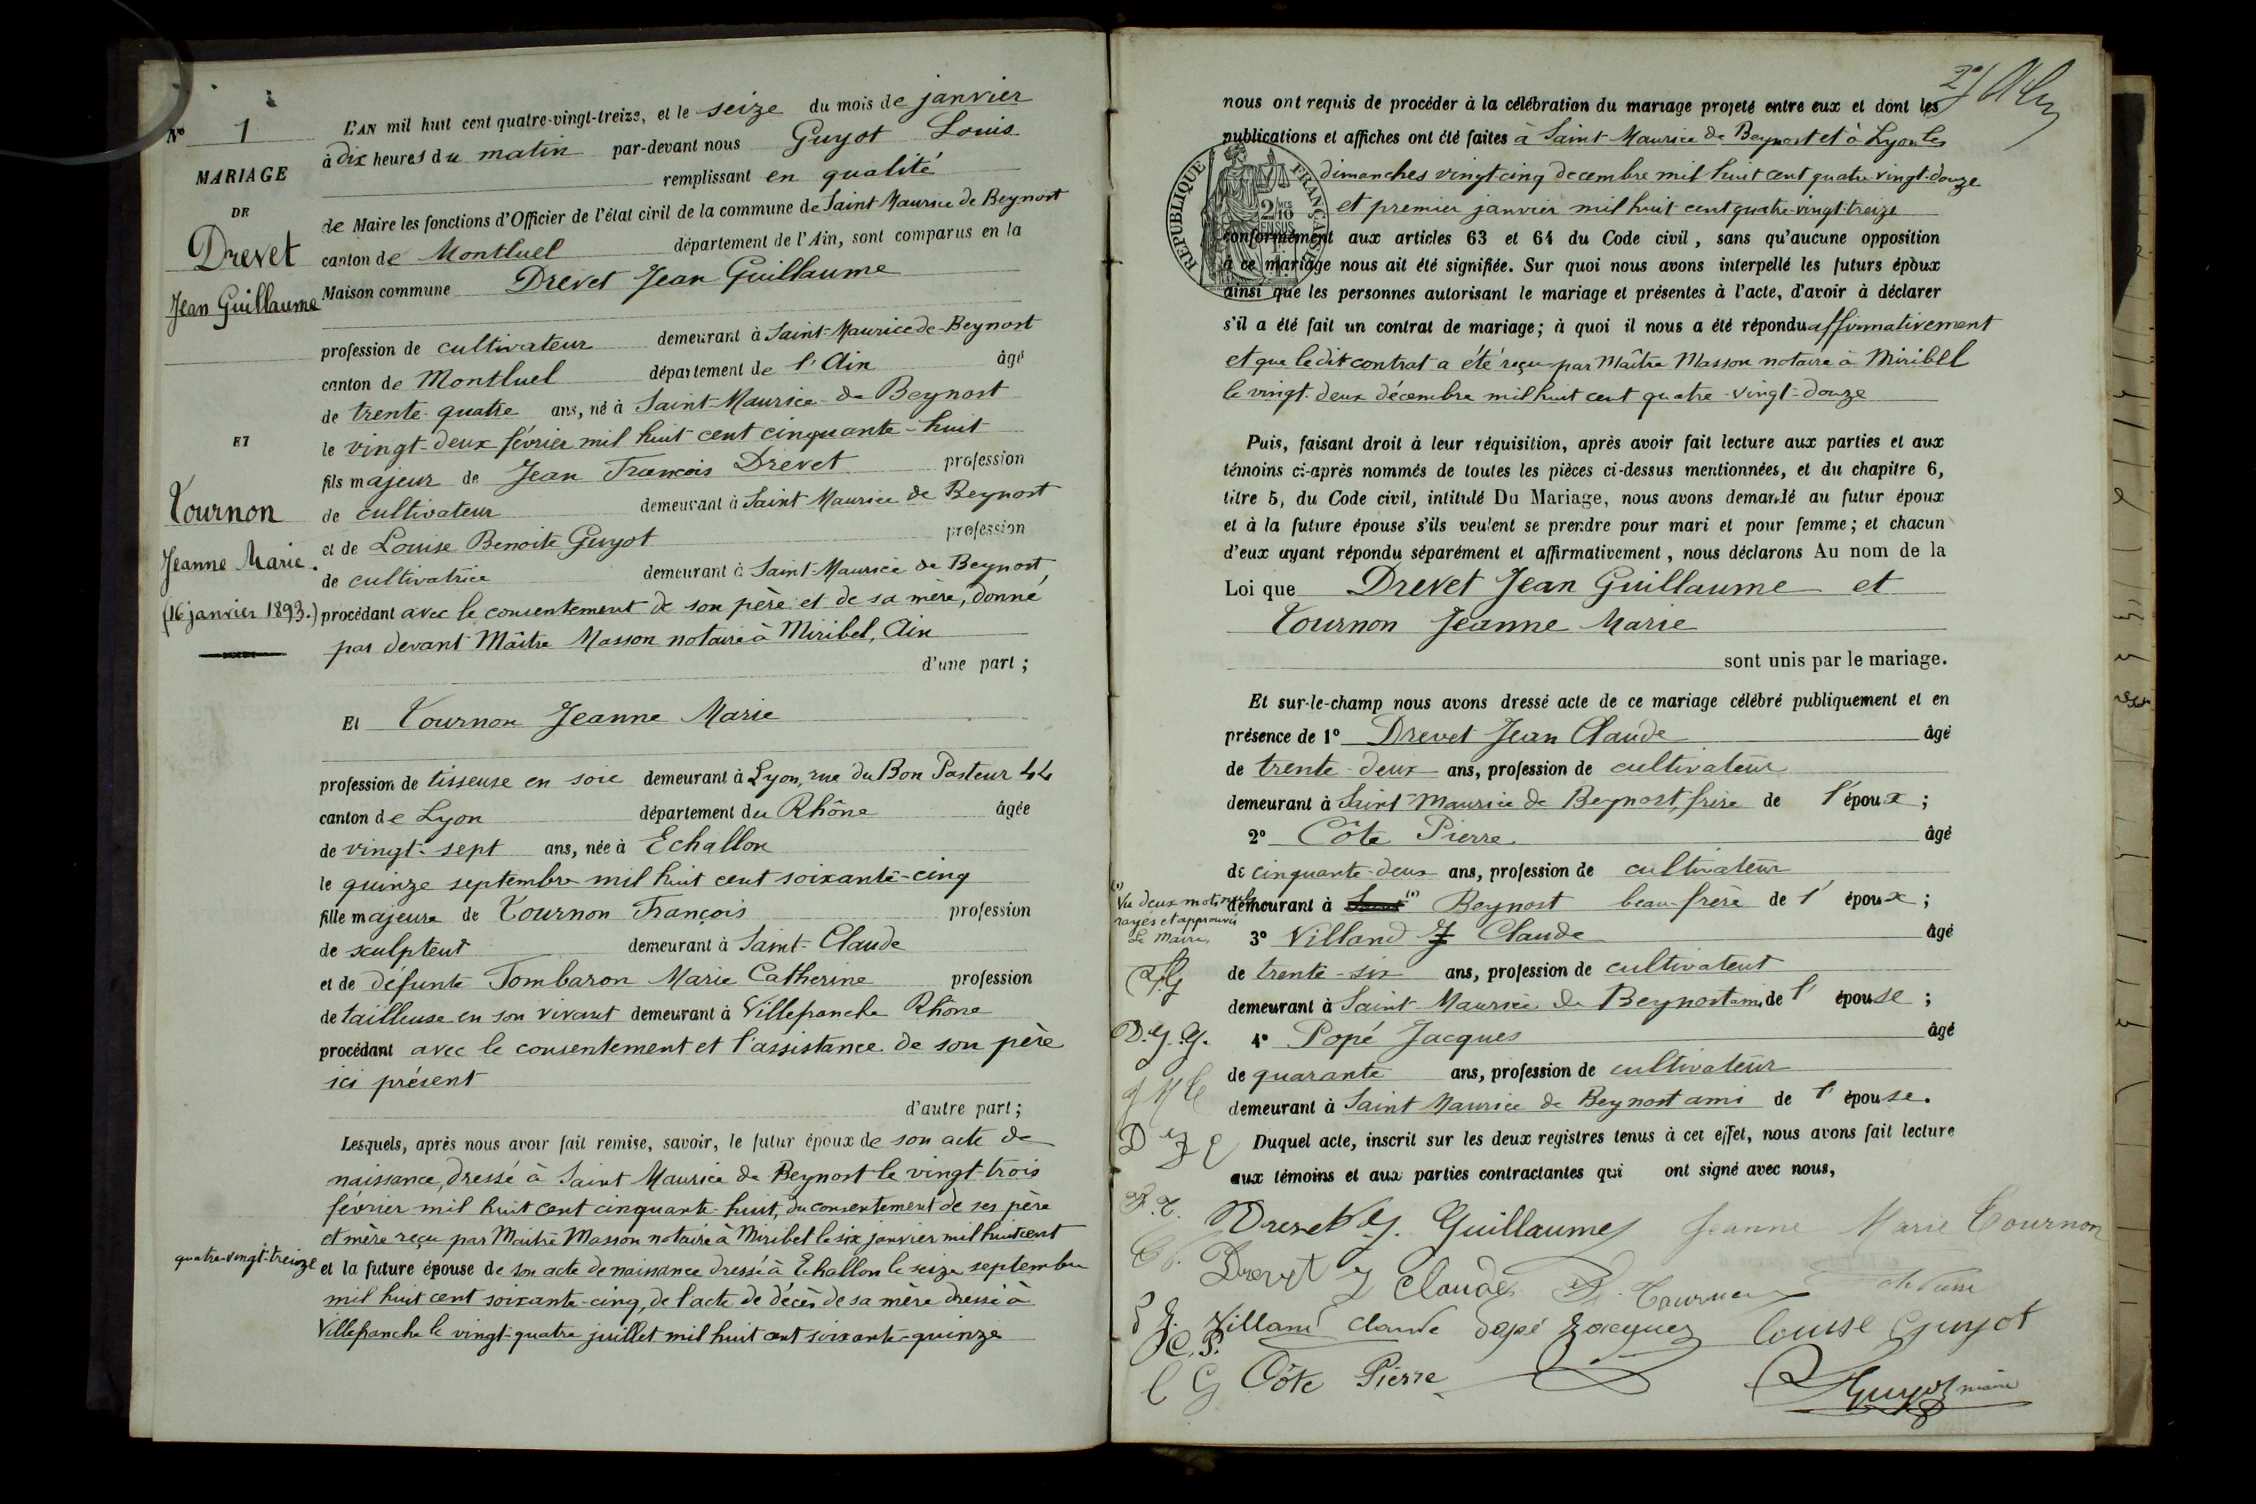 N° 1
MARIAGE
DE
Drevet
Jean Guillaume
ET
Tournon
Jeanne Marie.
(16 janvier 1893.)
L'AN mil huit cent quatre-vingt-treize, et le seize du mois de janvier
à dix heures du matin par-devant nous Guyot Louis
remplissant en qualité
de Maire les fonctions d'Officier de l'état civil de la commune de Saint Maurice de Beynost
canton de Montluel département de l'Ain, sont comparus en la
Maison commune Drevet Jean Guillaume
profession de cultivateur demeurant à Saint-Maurice de Beynost
canton de Montluel département de l'Ain âgé
de trente-quatre ans, né à Saint-Maurice de Beynost
le vingt-deux février mil huit cent cinquante-huit
fils majeur de Jean François Drevet profession
de cultivateur demeurant à Saint Maurice de Beynost
et de Louise Benoite Guyot profession
de cultivatrice demeurant à Saint-Maurice de Beynost
procédant avec le consentement de son père et de sa mère, donné
par devant Maître Masson notaire à Miribel, Ain
d'une part ;
Et Tournon Jeanne Marie
profession de tisseuse en soie demeurant à Lyon, rue du Bon Pasteur 44
canton de Lyon département du Rhône âgée
de vingt-sept ans, née à Echallon
le quinze septembre mil huit cent soixante-cinq
fille majeure de Tournon François profession
de sculpteur demeurant à Saint-Claude
et de défunte Tombaron Marie Catherine profession
de tailleuse en son vivant demeurant à Villefranche Rhône
procédant avec le consentement et l'assistance de son père
ici présent
d'autre part ;
Lesquels, après nous avoir fait remise, savoir, le futur époux de son acte de
naissance, dressé à Saint Maurice de Beynost le vingt-trois
février mil huit cent cinquante huit, du consentement de ses père
et mère reçu par Maître Masson notaire à Miribel le six janvier mil huit cent
quatre-vingt-treize et la future épouse de son acte de naissance dressé à Echallon le seize septembre
mil huit cent soixante-cinq, de l'acte de décès de sa mère dressé à
Villefranche le vingt-quatre juillet mil huit cent soixante-quinze
nous ont requis de procéder à la célébration du mariage projeté entre eux et dont les
publications et affiches ont été faites à Saint-Maurice de Beynost et à Lyon les
dimanches vingt cinq decembre mil huit cent quatre-vingt-douze
et premier janvier mil huit cent quatre-vingt-treize
RÉPUBLIQUE FRANÇAISE
conformément aux articles 63 et 64 du Code civil, sans qu'aucune opposition
à ce mariage nous ait été signifiée. Sur quoi nous avons interpellé les futurs époux
ainsi que les personnes autorisant le mariage et présentes à l'acte, d'avoir à déclarer
s'il a été fait un contrat de mariage; à quoi il nous a été répondu affirmativement
et que ledit contrat a été reçu par Maître Masson notaire à Miribel
le vingt-deux décembre mil huit cent quatre-vingt-douze
Puis, faisant droit à leur réquisition, après avoir fait lecture aux parties et aux
témoins ci-après nommés de toutes les pièces ci-dessus mentionnées, et du chapitre 6,
titre 5, du Code civil, intitulé Du Mariage, nous avons demandé au futur époux
et à la future épouse s'ils veulent se prendre pour mari et pour femme; et chacun
d'eux ayant répondu séparément et affirmativement, nous déclarons Au nom de la
Loi que Drevet Jean Guillaume et
Tournon Jeanne Marie
sont unis par le mariage.
Et sur-le-champ nous avons dressé acte de ce mariage célébré publiquement et en
présence de 1° Drevet Jean Claude âgé
de trente-deux ans, profession de cultivateur
demeurant à Saint-Maurice de Beynost, frère de l'époux ;
2° Côte Pierre âgé
de cinquante-deux ans, profession de cultivateur
demeurant à Saint (1) Beynost beau-frère de l'époux ;
(1) Vu deux mots nuls
rayés et approuvés
Le Maire,
L.G
3° Villand J Claude âgé
de trente-six ans, profession de cultivateur
demeurant à Saint Maurice de Beynost ami de l'épouse ;
D.J.G.
4° Popé Jacques âgé
de quarante ans, profession de cultivateur
demeurant à Saint Maurice de Beynost ami de l'épouse.
Duquel acte, inscrit sur les deux registres tenus à cet effet, nous avons fait lecture
aux témoins et aux parties contractantes qui ont signé avec nous,
Drevet J. Guillaume Jeanne Marie Tournon
Drevet J Claude Tournon
Villand Claude Popé Jacques Louise Guyot
Côte Pierre
Guyot maire